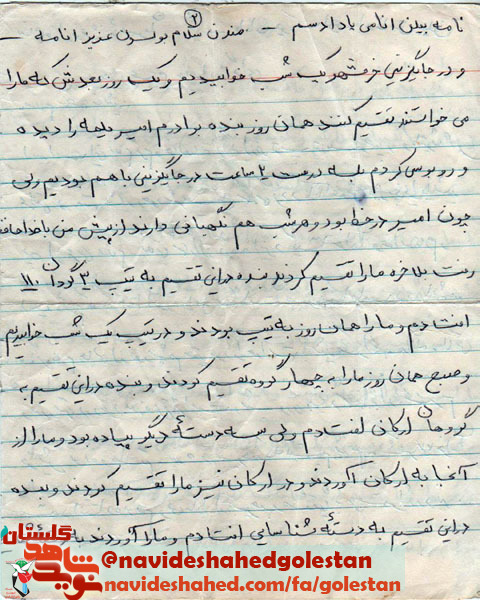 نامه بیلن انامی یادا دسم - مندن سلام بولسن عزیز انامه -
۲
و در جایگزینی خرمشهر یک شب خوابیدیم و یک روز بعدش که مارا
می خواستند تقسیم کنند همان روز بنده برادرم امیر یلمه را دیده
و روبوسی کردم بله درست ۲ ساعت در جایگزینی باهم بودیم ولی
چون امیر در خط بود و هر شب هم نگهبانی دارند از پیش من با خداحافظی
رفت بلاخره مارا تقسیم کردند بنده در این تقسیم به تیپ ۳ گردان ۱۱۰
افتادم و مارا همان روز به تیپ بودند و در تیپ یک شب خوابیدیم
و صبح همان روز مارا به چهار گروه تقسیم کردند و بنده در این تقسیم به
گروهان ارکانی افتادم ولی سه دستهٔ دیگر پیاده بود و مارا از
آنجا به ارکان آوردند و در ارکان نیز مارا تقسیم کردند و بنده
در این تقسیم به دستهٔ شناسایی افتادم و مارا آوردند به
شاهد
نوید
گلستان
@navideshahedgolestan
navideshahed.com/fa/golestan